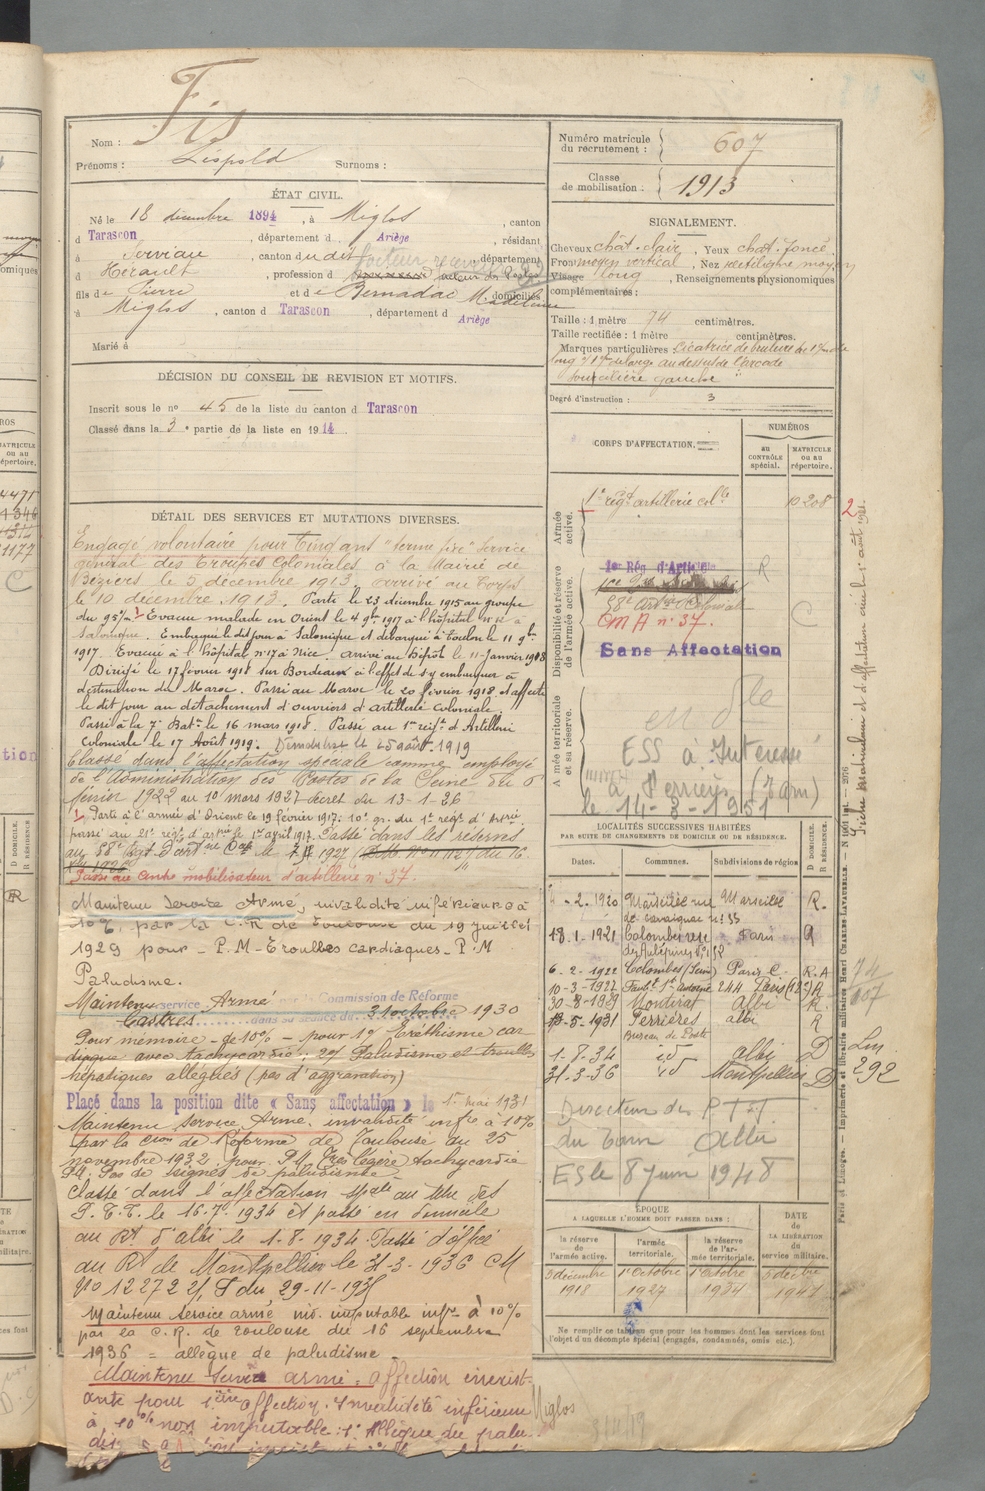 Nom : Fis
Prénoms : Léopold Surnoms :
Numéro matricule du recrutement : 607
Classe de mobilisation : 1913
ÉTAT CIVIL.
Né le 18 décembre 1894, à Miglos, canton
d Tarascon, département d Ariège, résidant
à Servian, canton du dit, département
d Hérault, profession d facteur des Postes
fils de Pierre et de Bernadac Madeleine domiciliés
à Miglos, canton d Tarascon, département d Ariège
Marié à
SIGNALEMENT.
Cheveux chât. clair, Yeux chât. foncé
Front moyen vertical, Nez rectiligne moyen
Visage long, Renseignements physionomiques
complémentaires :
Taille : 1 mètre 74 centimètres.
Taille rectifiée : 1 mètre centimètres.
Marques particulières Cicatrice de brulure de
long au dessus de l'arcade
sourcilière gauche
Degré d'instruction : 3
DÉCISION DU CONSEIL DE REVISION ET MOTIFS.
Inscrit sous le n° 45 de la liste du canton d Tarascon
Classé dans la 3e partie de la liste en 1914
DÉTAIL DES SERVICES ET MUTATIONS DIVERSES.
Engagé volontaire pour Cinq ans "terme fixé" service
général des Troupes Coloniales à la Mairie de
Béziers le 5 décembre 1913, arrivé au Corps
le 10 décembre 1913. Parti le 23 décembre 1915 au groupe
du 95 m/m Evacué malade en Orient le 4 9bre 1917 à l'hôpital à
Salonique. Embarqué le dit jour à Salonique et débarqué à Toulon le 11 9bre
1917. Evacué à l'hôpital n°17 à Nice. Arrivé au Dépôt le 11 Janvier 1918
Dirigé le 17 février 1918 sur Bordeaux à l'effet de s'y embarquer à
destination du Maroc. Passé au Maroc le 20 février 1918. Affecté
le dit jour au détachement d'ouvriers d'artillerie coloniale.
Passé à le 7e Batie le 16 mars 1918. Passé au 1er régt d'Artillerie
Coloniale le 17 Août 1919. Démobilisé le 25 août 1919
Classé dans l'affectation spéciale comme employé
de l'Administration des Postes de la Seine du 6
février 1922 au 10 mars 1927 décret du 13-1-26
Parti à l'armée d'Orient le 19 février 1917. 10e gr. du 1er régt d'Artrie
passé au 21e régt d'artrie le 1er avril 1917. Passé dans les réserves
au 58e Régt d'artrie Cale le 1927
Passé au centre mobilisateur d'artillerie n° 37.
Maintenu Service Armé, invalidité inférieure à
10%, par la C.R de Toulouse du 19 juillet
1929 pour - P.M - Troubles cardiaques - P.M
Paludisme.
Maintenu service Armé par la Commission de Réforme
Castres dans sa séance du 31 octobre 1930
Pour mémoire - de 10% - pour 1°/ Eréthisme car
diaque avec tachycardie. 2°/ Paludisme et troubles
hépatiques allégués (pas d'aggravation)
Placé dans la position dite « Sans affectation » le 1er mai 1931
Maintenu Service Armé. invalidité infre à 10%
par la Cion de Réforme de Toulouse du 25
novembre 1932 pour P.M Très légère tachycardie
P.M. Pas de signes de paludisme
Classé dans l'affectation spale au titre des
P.T.T. le 16.7. 1934 et passé en domicile
au Rt d'albi le 1.8.1934. Passé d'office
au Rt de Montpellier le 31-3-1936 CM
N° 12272 du 29-11-1935
Maintenu service armé inv. imputable infre à 10%
par la C.R. de Toulouse du 16 septembre
1936 = allègue de paludisme -
Maintenu Service armé = affection inexist-
ante pour 1ère affection. Invalidité inférieure
à 10% non imputable : 1° Allègue du palu-
CORPS D'AFFECTATION.
NUMÉROS
au contrôle spécial.
matricule ou au répertoire.
Armée active.
1er régt artillerie cole 10208
Disponibilité et réserve de l'armée active.
1er Rég d'Artillerie R
58e Artie Coloniale
CMA n° 37. C
Sans Affectation
Armée territoriale et sa réserve.
en dle
ESS à Interessé
à Ferrières (Tarn)
le 14-8-1951
LOCALITÉS SUCCESSIVES HABITÉES
PAR SUITE DE CHANGEMENTS DE DOMICILE OU DE RÉSIDENCE.
Dates. Communes. Subdivisions de région D DOMICILE. R RÉSIDENCE
-2-1920 Marseille rue Marseille R.
18.1-1921 Colombes rue Paris R
6-2-1922 Colombes (Seine) Paris C. R.A
10-3-1927 244 Paris A
30-8-1929 Montirat Albi R.
13-5-1931 Ferrières albi R
Bureau de Poste
1-8-34 id albi D
31-3-36 id Montpellier D
Directeur des PTT
du Tarn Albi
ES le 8 Juin 1948
74
107
Lun
292
ÉPOQUE
A LAQUELLE L'HOMME DOIT PASSER DANS :
la réserve de l'armée active. l'armée territoriale. la réserve de l'armée territoriale. DATE de LA LIBÉRATION du service militaire.
5 décembre 1918 1er Octobre 1927 1er Octobre 1934 5 décbre 1941
Ne remplir ce tableau que pour les hommes dont les services font
l'objet d'un décompte spécial (engagés, condamnés, omis etc.).
Miglos
Paris et Limoges. — Imprimerie et librairie militaires Henri CHARLES-LAVAUZELLE.